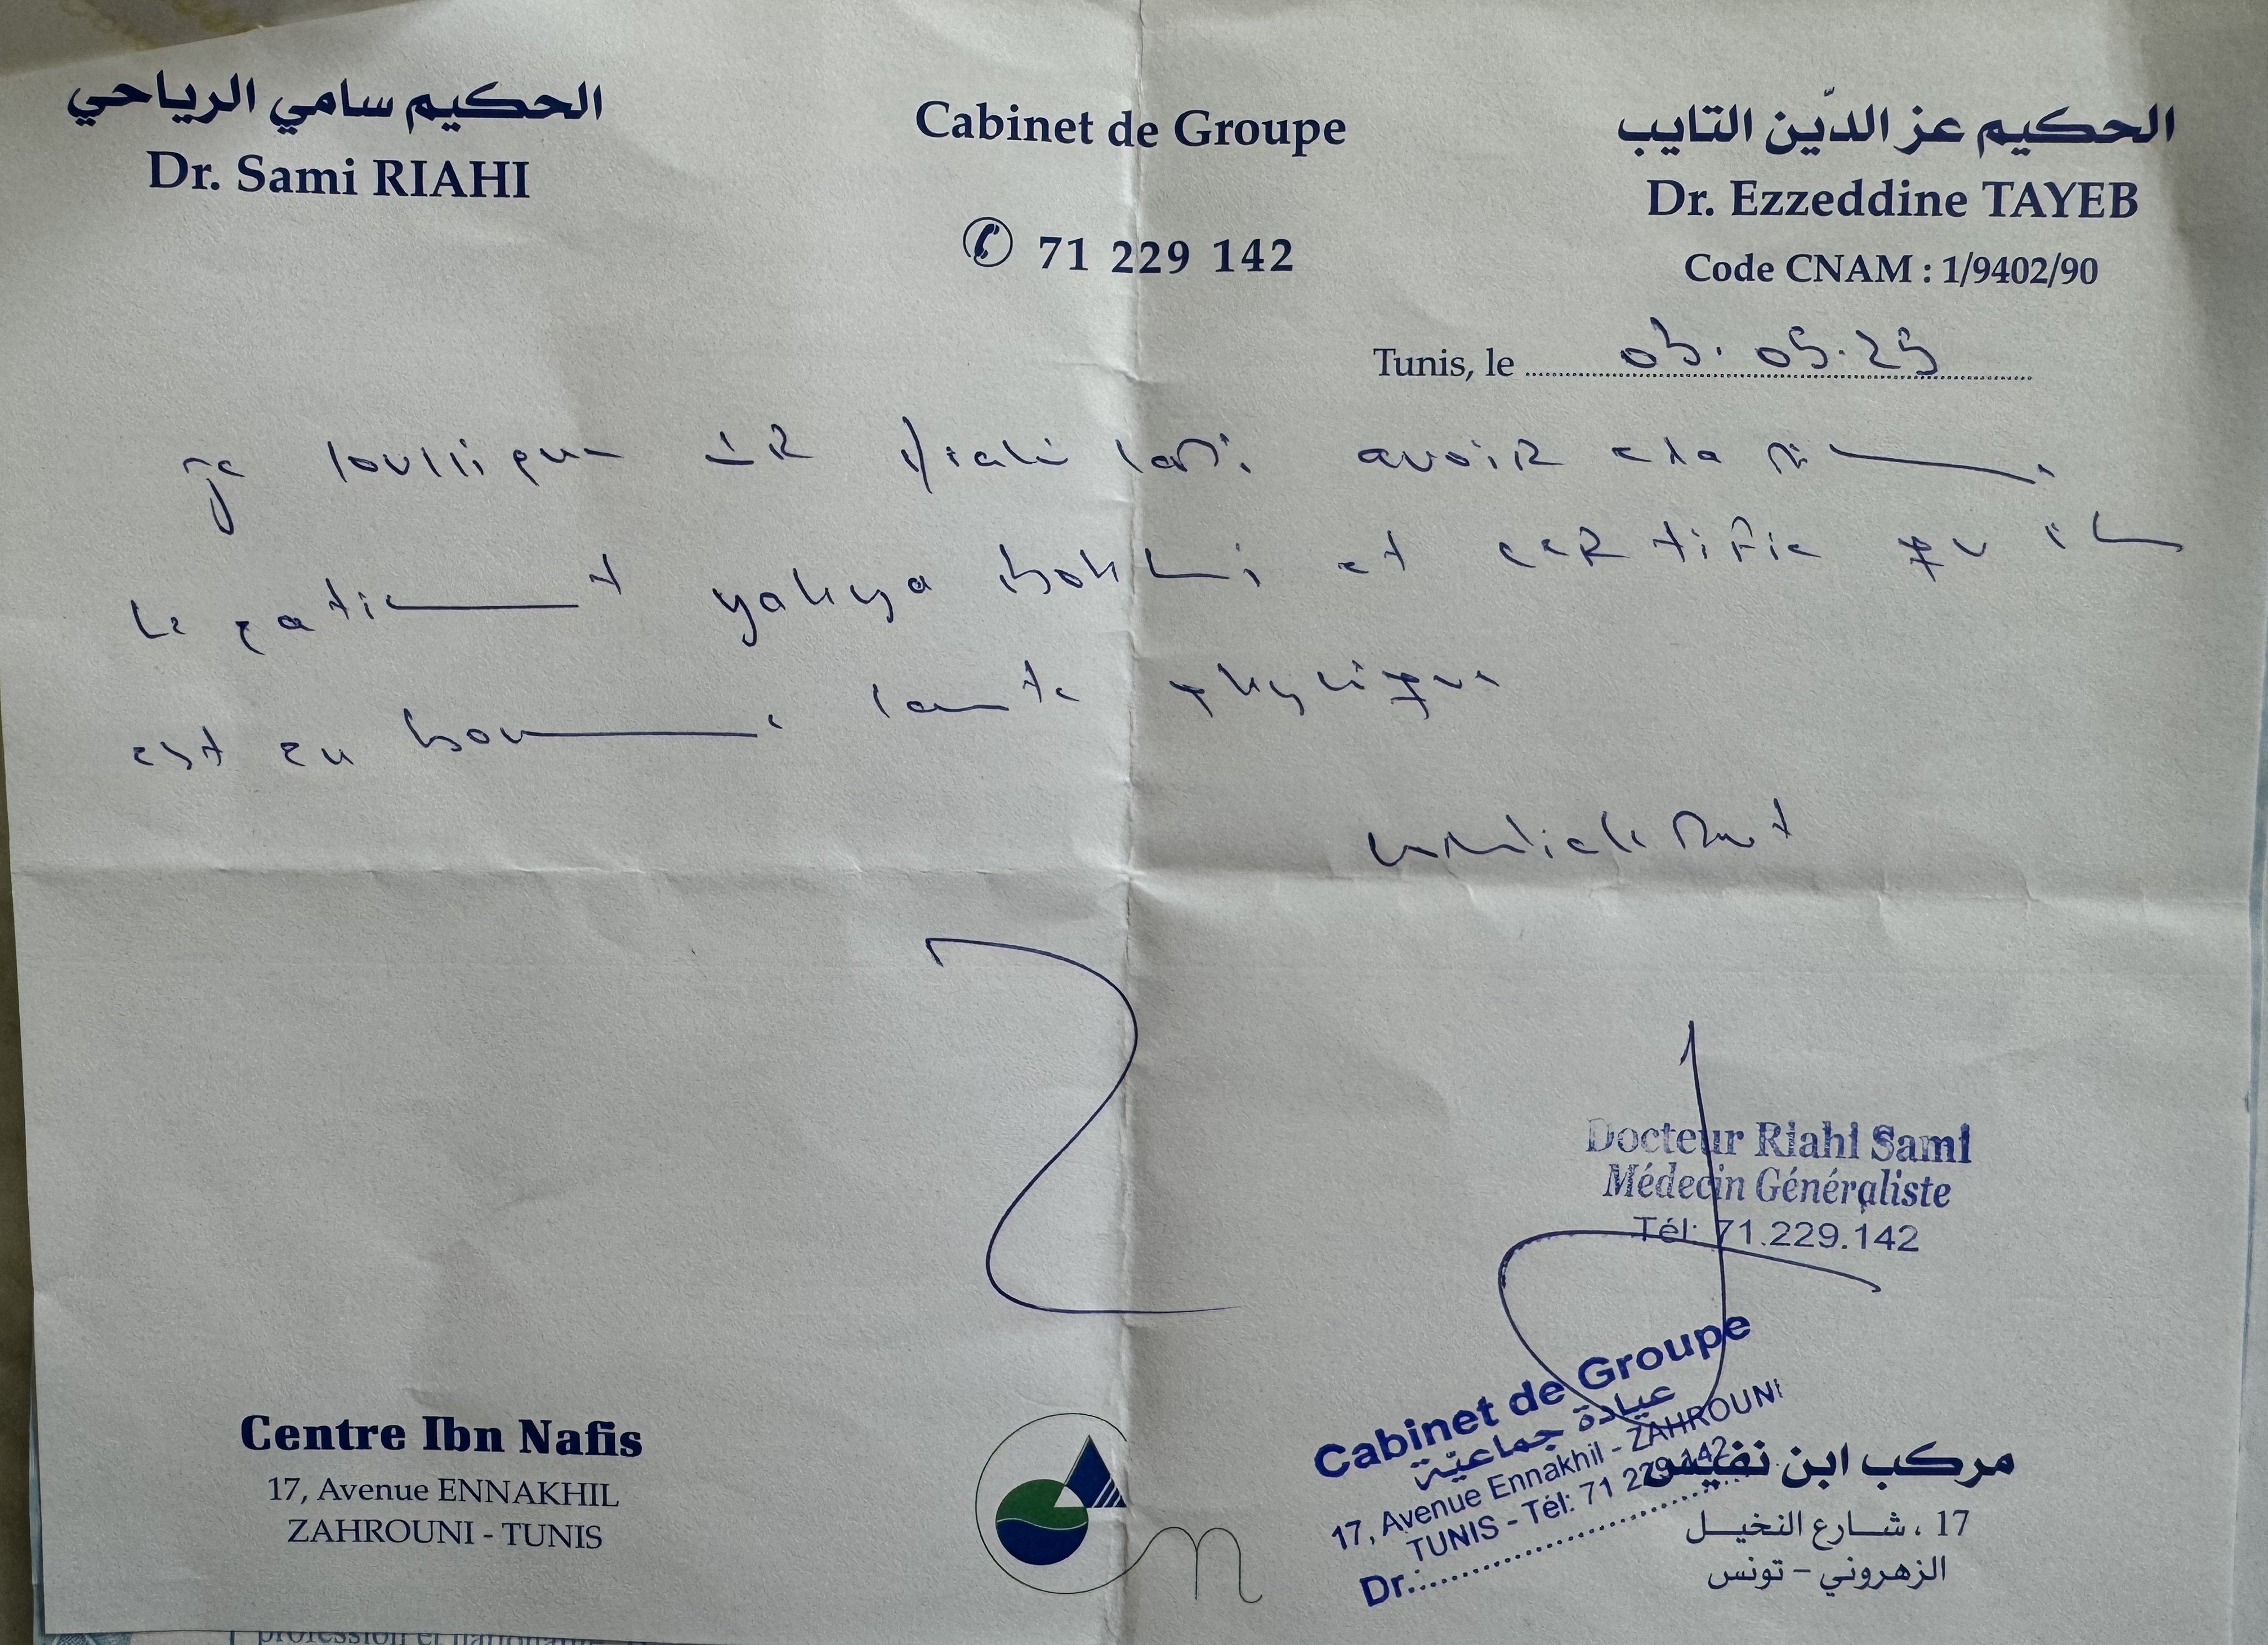 الحكيم سامي الرياحي
Dr. Sami RIAHI
Cabinet de Groupe
71 229 142
الحكيم عز الدّين التايب
Dr. Ezzeddine TAYEB
Code CNAM : 1/9402/90
Tunis, le 05.05.25
je soussigné DR Riahi Sami avoir examiné
le patient yahya et certifie qu il
est en bonne santé physique
cordialement
Docteur Riahi Sami
Médecin Généraliste
Tél: 71.229.142
Cabinet de Groupe
عيادة جماعيّة
17, Avenue Ennakhil - ZAHROUNI
TUNIS - Tél: 71 229 142
Dr:
Centre Ibn Nafis
17, Avenue ENNAKHIL
ZAHROUNI - TUNIS
مركب ابن نفيس
17 ، شارع النخيل
الزهروني – تونس